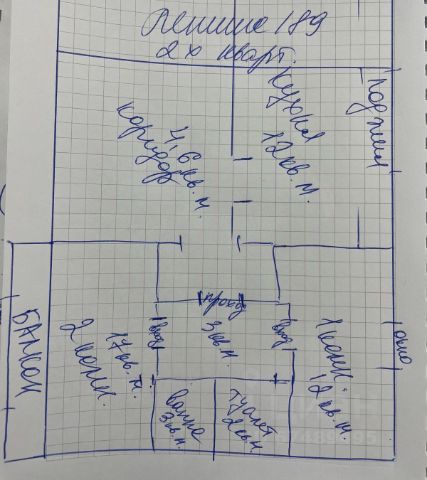 Ленина 189
2х кварт.
коридор
4,6
кв.м.
Кухня
12 кв.м.
Лоджия
БАЛКОН
2 комн.
17 кв.м.
вход
проход
3 кв.м.
вход
1 комн.
12 кв.м.
окно
ванна
3 кв.м.
туалет
2 кв.м